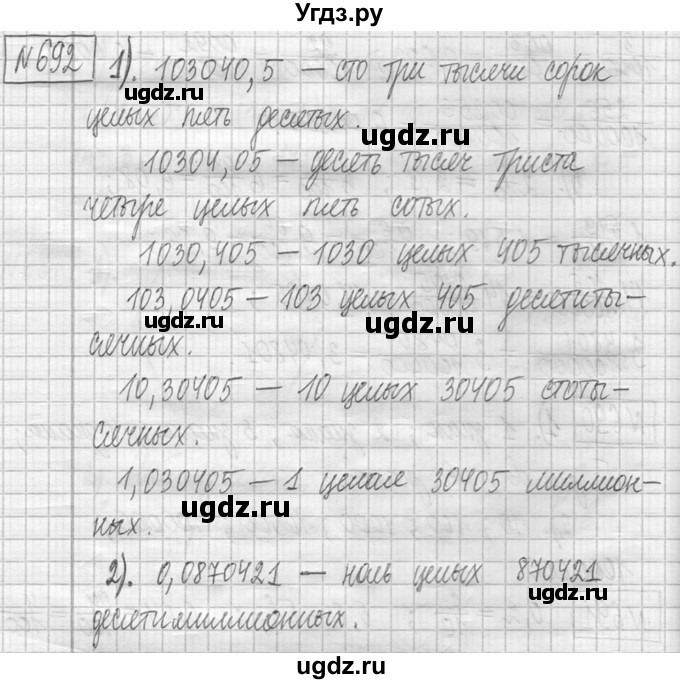 Угдз.ру
№692 1). 103040,5 — сто три тысячи сорок
целых пять десятых.
10304,05 — десять тысяч триста
четыре целых пять сотых.
1030,405 — 1030 целых 405 тысячных.
103,0405 — 103 целых 405 десятиты-
сячных.
10,30405 — 10 целых 30405 стоты-
сячных.
1,030405 — 1 целая 30405 миллион-
ных.
2). 0,0870421 — ноль целых 870421
десятимиллионных.
ugdz.ru
ugdz.ru
ugdz.ru
ugdz.ru
ugdz.ru
ugdz.ru
ugdz.ru
ugdz.ru
ugdz.ru
ugdz.ru
ugdz.ru